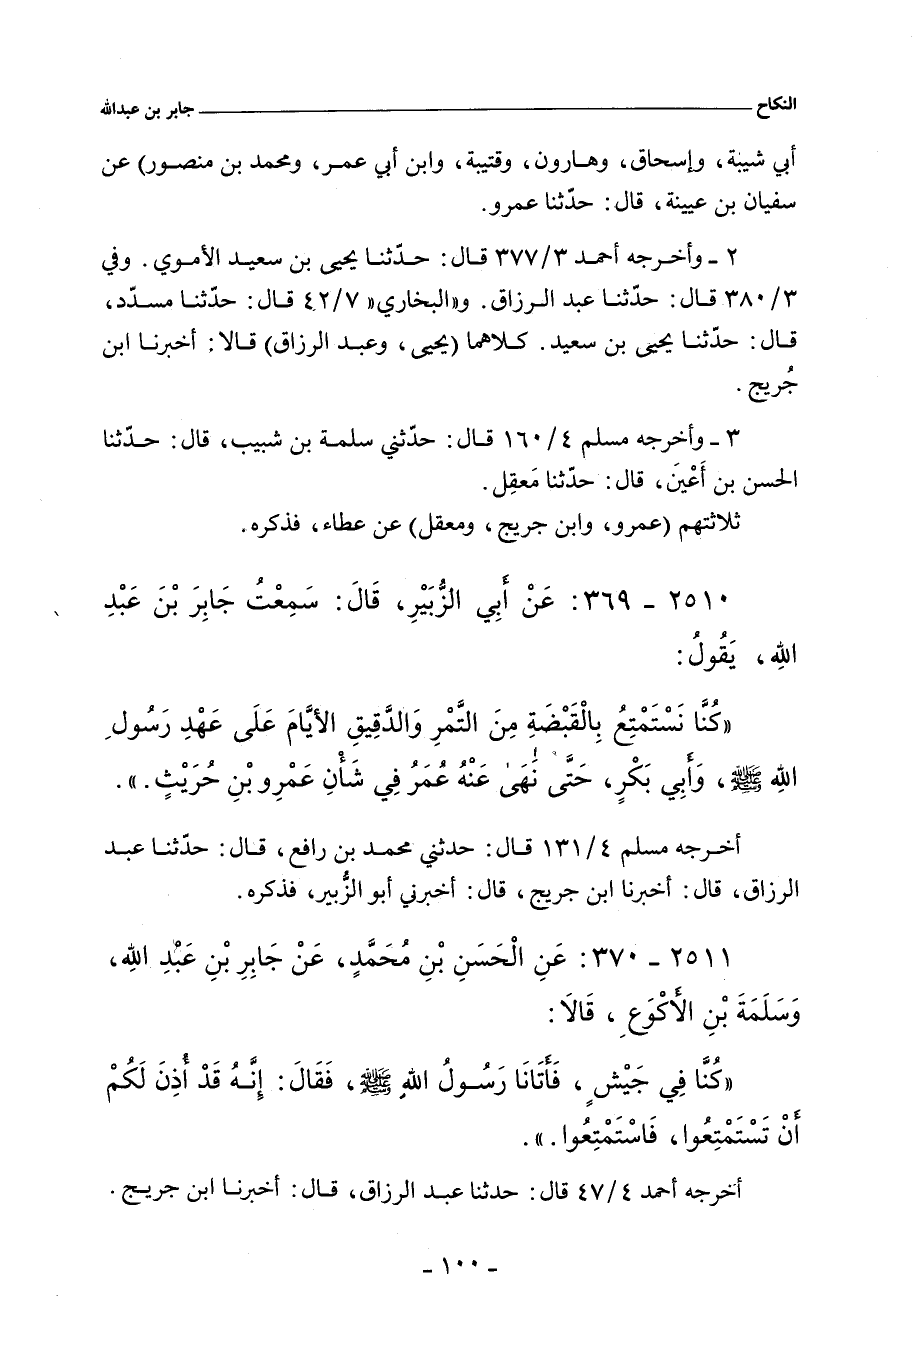 النكاح جابر بن عبدالله
أبي شيبة، وإسحاق، وهارون، وقتيبة، وابن أبي عمر، ومحمد بن منصور) عن
سفيان بن عيينة، قال: حدّثنا عمرو.
٢ ـ وأخرجه أحمد ٣٧٧/٣ قال: حدّثنا يحيى بن سعيد الأموي. وفي
٣٨٠/٣ قال: حدّثنا عبد الرزاق. و«البخاري» ٤٢/٧ قال: حدّثنا مسدّد،
قال: حدّثنا يحيى بن سعيد. كلاهما (يحيى، وعبد الرزاق) قالا: أخبرنا ابن
جُريج.
٣ ـ وأخرجه مسلم ١٦٠/٤ قال: حدّثني سلمة بن شبيب، قال: حدّثنا
الحسن بن أَعْيَن، قال: حدّثنا مَعقِل.
ثلاثتهم (عمرو، وابن جريج، ومعقل) عن عطاء، فذكره.
٢٥١٠ ـ ٣٦٩: عَنْ أَبِي الزُّبَيْرِ، قَالَ: سَمِعْتُ جَابِرَ بْنَ عَبْدِ
اللهِ، يَقُولُ:
«كُنَّا نَسْتَمْتِعُ بِالْقَبْضَةِ مِنَ التَّمْرِ وَالدَّقِيقِ الأيَّامَ عَلَى عَهْدِ رَسُولِ
اللهِ ﷺ، وَأَبِي بَكْرٍ، حَتَّى نَهَى عَنْهُ عُمَرُ فِي شَأْنِ عَمْرِو بْنِ حُرَيْثٍ.».
أخرجه مسلم ١٣١/٤ قال: حدثني محمد بن رافع، قال: حدّثنا عبد
الرزاق، قال: أخبرنا ابن جريج، قال: أخبرني أبو الزُّبير، فذكره.
٢٥١١ ـ ٣٧٠: عَنِ الْحَسَنِ بْنِ مُحَمَّدٍ، عَنْ جَابِرِ بْنِ عَبْدِ اللهِ،
وَسَلَمَةَ بْنِ الأَكْوَعِ، قَالَا:
«كُنَّا فِي جَيْشٍ، فَأَتَانَا رَسُولُ اللهِ ﷺ، فَقَالَ: إِنَّهُ قَدْ أُذِنَ لَكُمْ
أَنْ تَسْتَمْتِعُوا، فَاسْتَمْتِعُوا.».
أخرجه أحمد ٤٧/٤ قال: حدثنا عبد الرزاق، قال: أخبرنا ابن جريج.
ـ ١٠٠ ـ